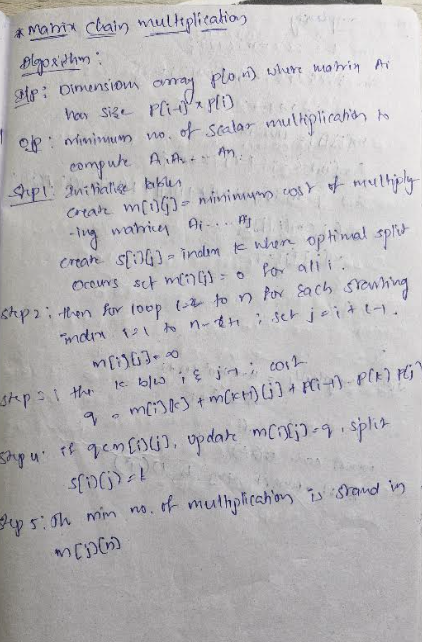 * Matrix Chain multiplication
Algorithm:
I/p: Dimensions array p(0,n) where matrix Ai
has size P[i-1] x P[i]
O/p: minimum no. of scalar multiplication to
compute A1A2... An
Step 1: Initialise tables
create m[i][j] = minimum cost of multiply
-ing matrices Ai.... Aj
create s[i][j] = index k where optimal split
occurs set m[i][i] = 0 for all i.
step 2: then for loop l=2 to n for each starting
index i=1 to n-l+1 ; set j = i + l-1.
m[i][j]=∞
step 3: the k b/w i & j-1 ; cost
q = m[i][k] + m[k+1][j] + P[i-1] . P[k] P[j]
Step 4: if q<m[i][j], update m[i][j]=q, split
s[i][j]=k
Step 5: The min no. of multiplication is stand in
m[j][n]